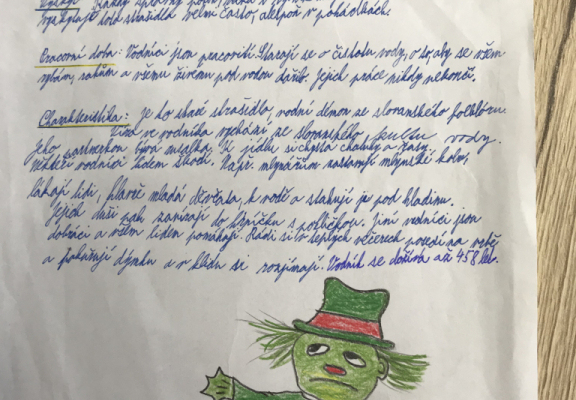 vyskytuje toto strašidlo velmi často, alespoň v pohádkách.
Pracovní doba: Vodníci jsou pracovití. Starají se o čistotu vody, o to, aby se všem
rybám, rakům a všemu živému pod vodou dařilo. Jejich práce nikdy nekončí.
Charakteristika: Je to staré strašidlo, vodní démon ze slovanského folklóru.
Víra ve vodníka vychází ze slovanského kultu vody.
Jeho partnerkou bývá rusalka. K jídlu si chystá chaluhy a řasy.
Někteří vodníci lidem škodí. Např. mlynářům zastavují mlýnské kolo,
lákají lidi, hlavně mladá děvčata, k vodě a stahují je pod hladinu.
Jejich duši pak zavírají do hrníčku s pokličkou. Jiní vodníci jsou
dobráci a všem lidem pomáhají. Rádi si v teplých večerech posedí na vrbě
a pokuřují dýmku a v klidu si rozjímají. Vodník se dožívá až 458 let.